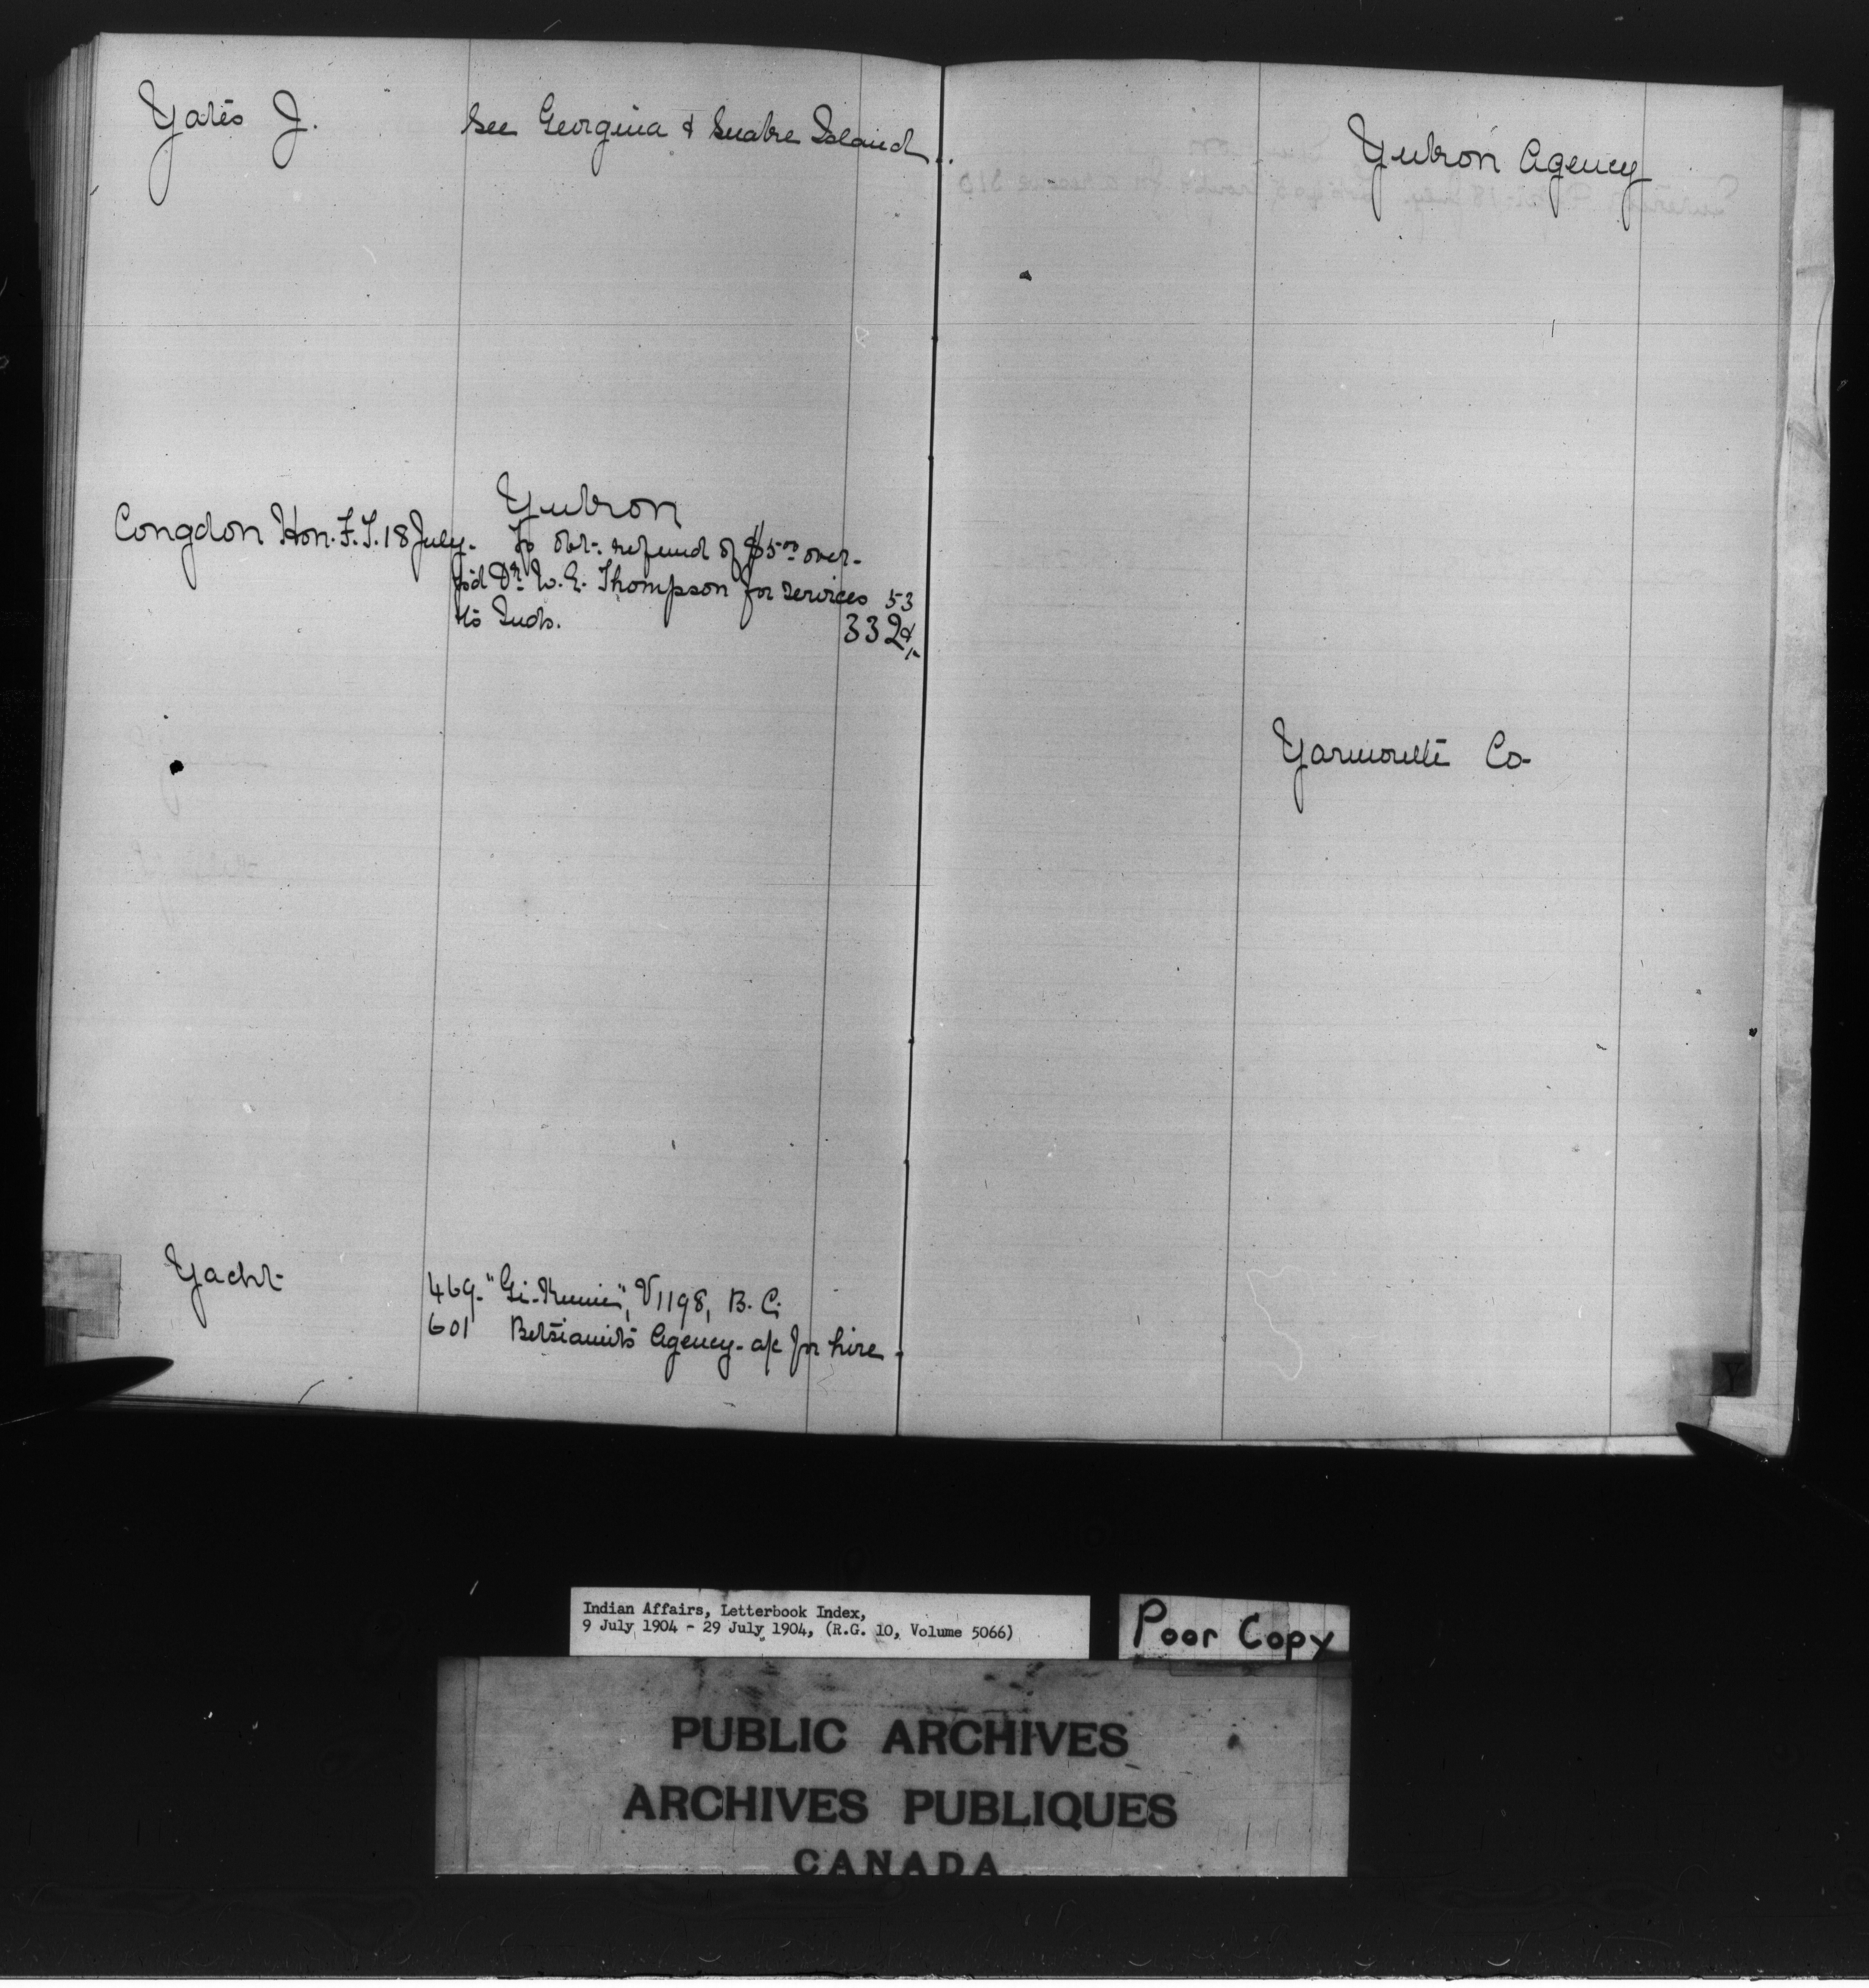 Yates J. See Georgina & Snake Island.
Yukon
Congdon Hon. F. T. 18 July. To obt. refund of $5.00 over-
p'd Dr. W. E. Thompson for services 53
to Inds. 332 &
Yacht 469. "Gi-Kumi", V1198, B. C.
601 Betsiamits Agency - a/c for hire.
Yukon Agency
Yarmouth Co.
Y
Indian Affairs, Letterbook Index,
9 July 1904 - 29 July 1904, (R.G. 10, Volume 5066)
Poor Copy
PUBLIC ARCHIVES
ARCHIVES PUBLIQUES
CANADA